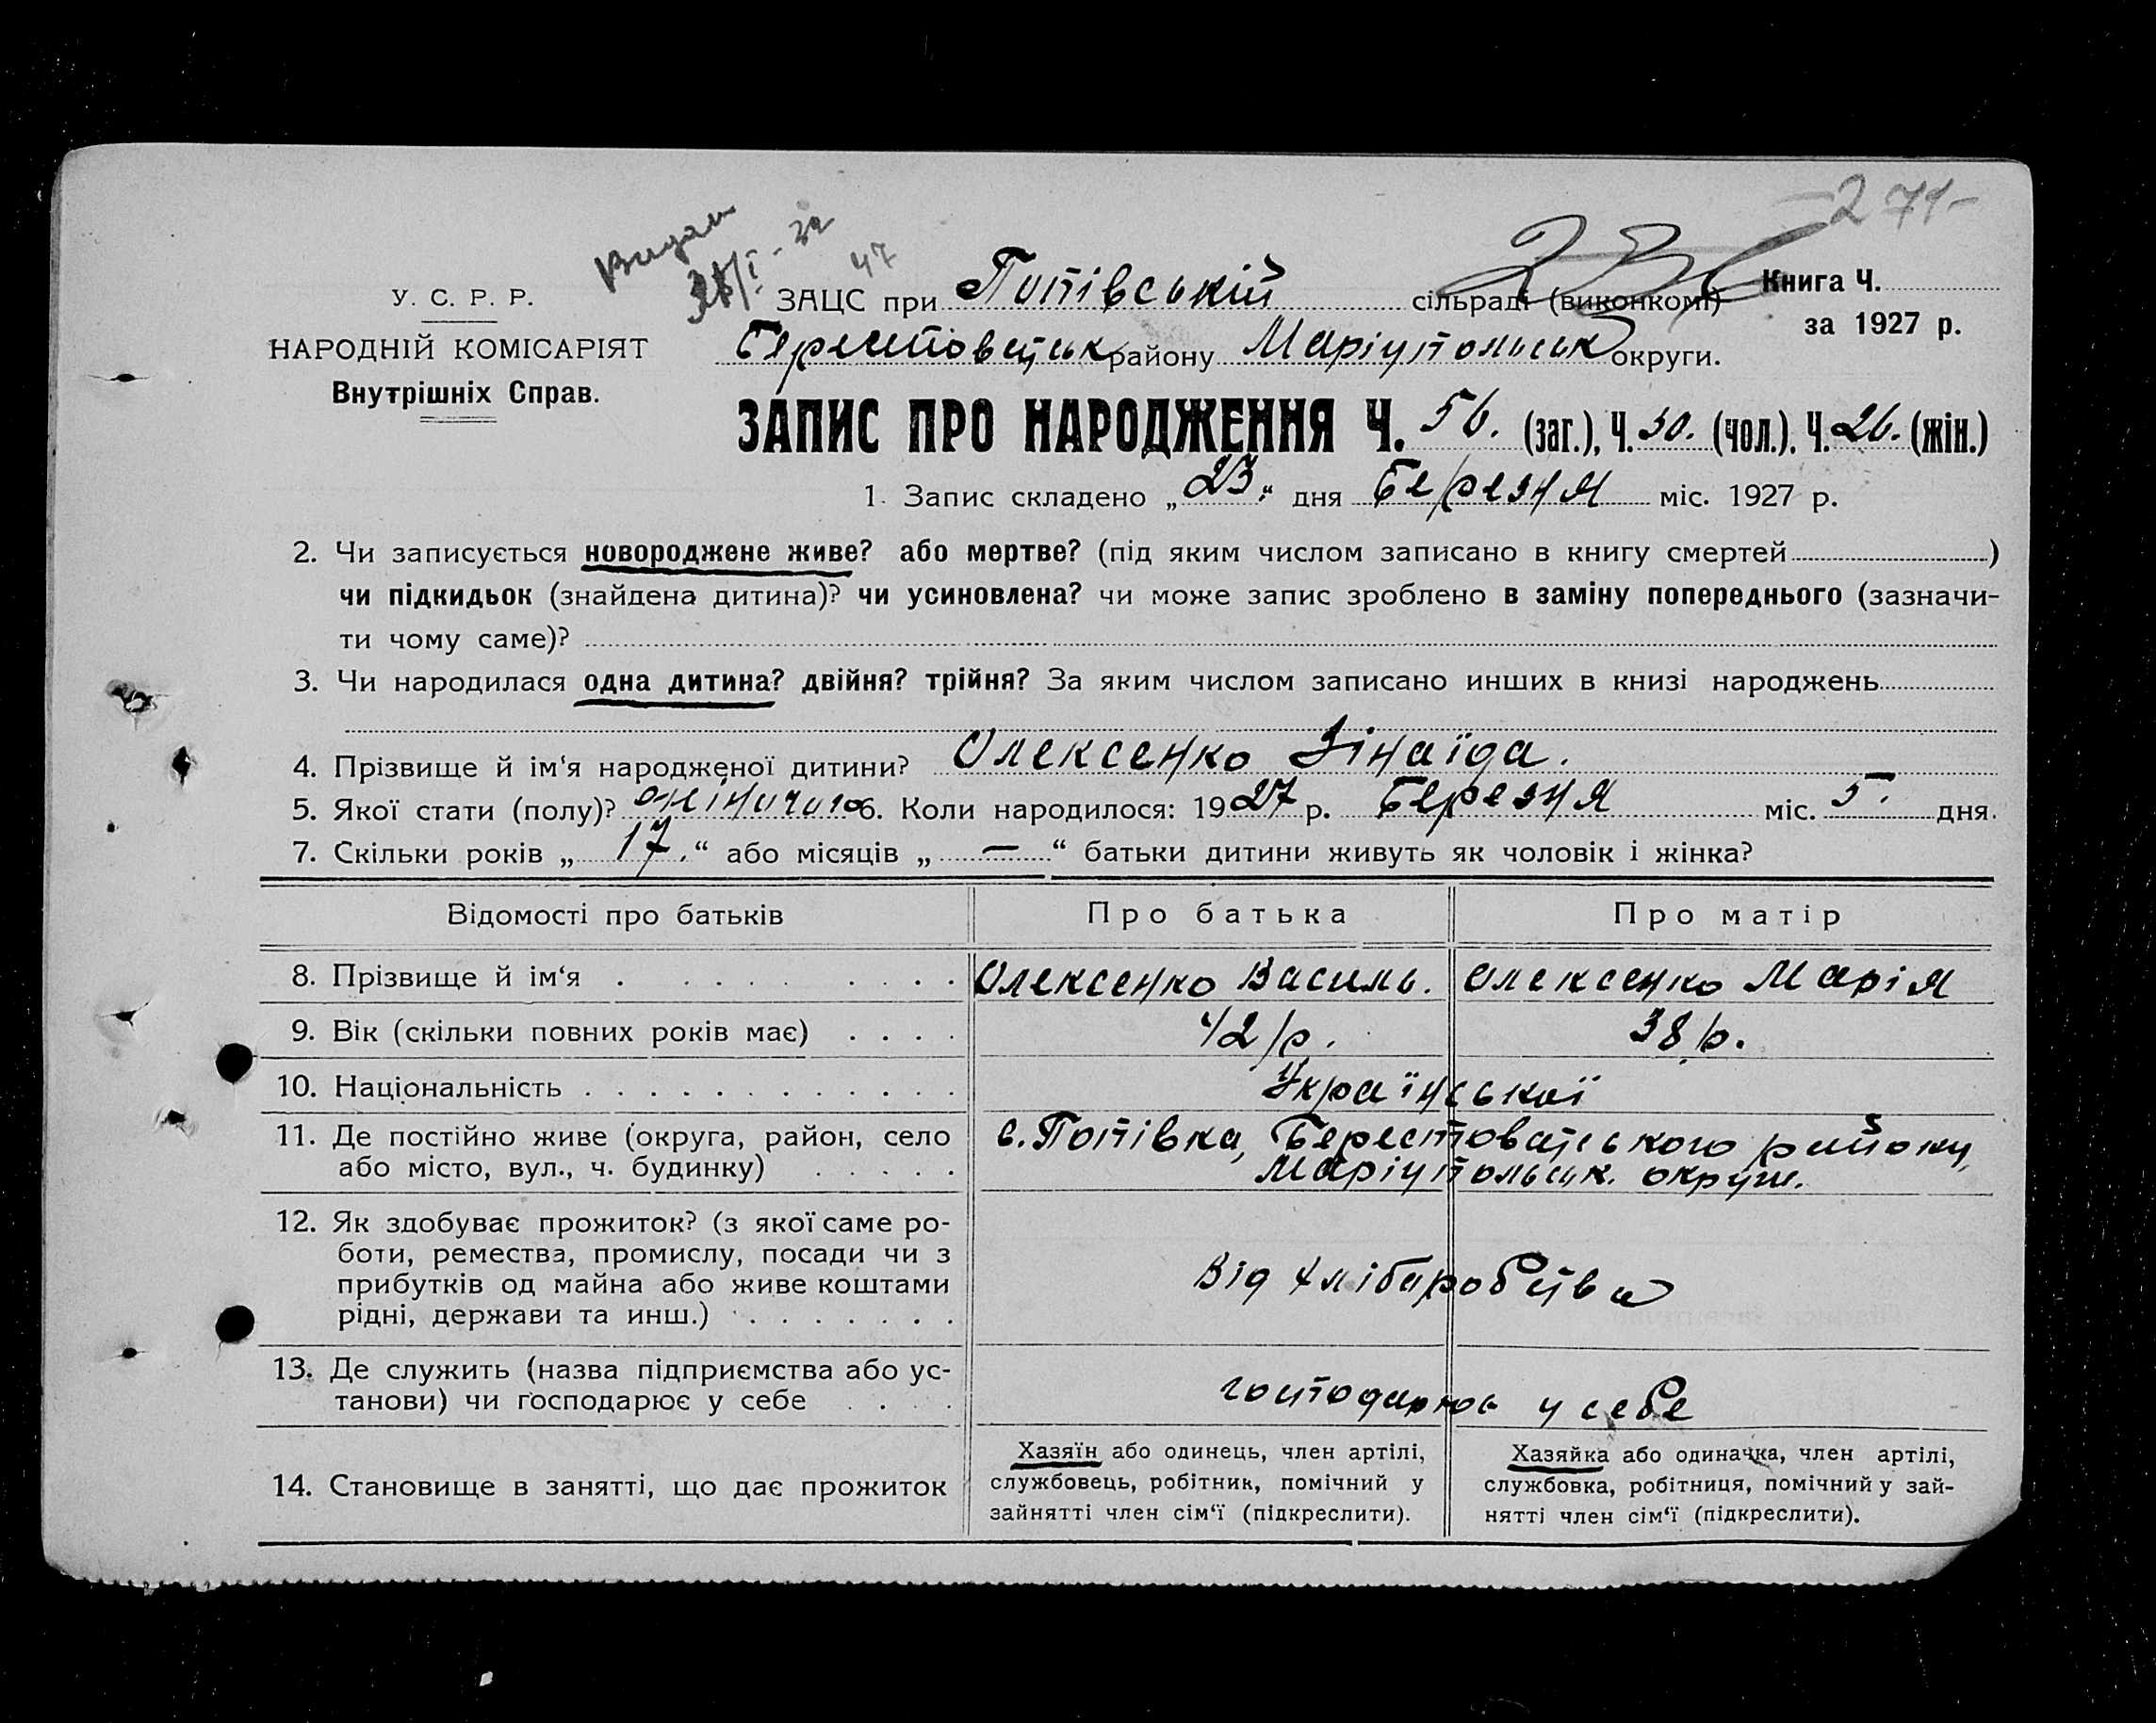 271
У. С. Р. Р.
НАРОДНІЙ КОМІСАРІЯТ
Внутрішніх Справ.
47
ЗАЦС при Попівській сільраді (виконкомі)
Книга Ч.
за 1927 р.
Берестовецьк району Маріупольськ округи.
ЗАПИС ПРО НАРОДЖЕННЯ Ч. 56. (заг.), Ч. 30. (чол.), Ч. 26. (жін.)
1. Запис складено „23.“ дня Березня міс. 1927 р.
2. Чи записується новороджене живе? або мертве? (під яким числом записано в книгу смертей )
чи підкидьок (знайдена дитина)? чи усиновлена? чи може запис зроблено в заміну попереднього (зазначи-
ти чому саме)?
3. Чи народилася одна дитина? двійня? трійня? За яким числом записано инших в книзі народжень
4. Прізвище й ім‘я народженої дитини? Олексенко Зінаїда.
5. Якої стати (полу)? жіночого 6. Коли народилося: 1927 р. Березня міс. 5. дня.
7. Скільки років „17.“ або місяців „—“ батьки дитини живуть як чоловік і жінка?
Відомості про батьків Про батька Про матір
8. Прізвище й ім‘я Олексенко Василь. Олексенко Марія
9. Вік (скільки повних років має) 42 р. 38 р.
10. Національність Української
11. Де постійно живе (округа, район, село
або місто, вул., ч. будинку)
с. Попівка, Берестовецького району,
Маріупольськ. округи.
12. Як здобуває прожиток? (з якої саме ро-
боти, ремества, промислу, посади чи з
прибутків од майна або живе коштами
рідні, держави та инш.)
Від хліборобства
13. Де служить (назва підприємства або ус-
танови) чи господарює у себе
господарює у себе
14. Становище в занятті, що дає прожиток
Хазяїн або одинець, член артілі,
службовець, робітник, помічний у
зайнятті член сім‘ї (підкреслити).
Хазяйка або одиначка, член артілі,
службовка, робітниця, помічний у зай-
нятті член сім‘ї (підкреслити).